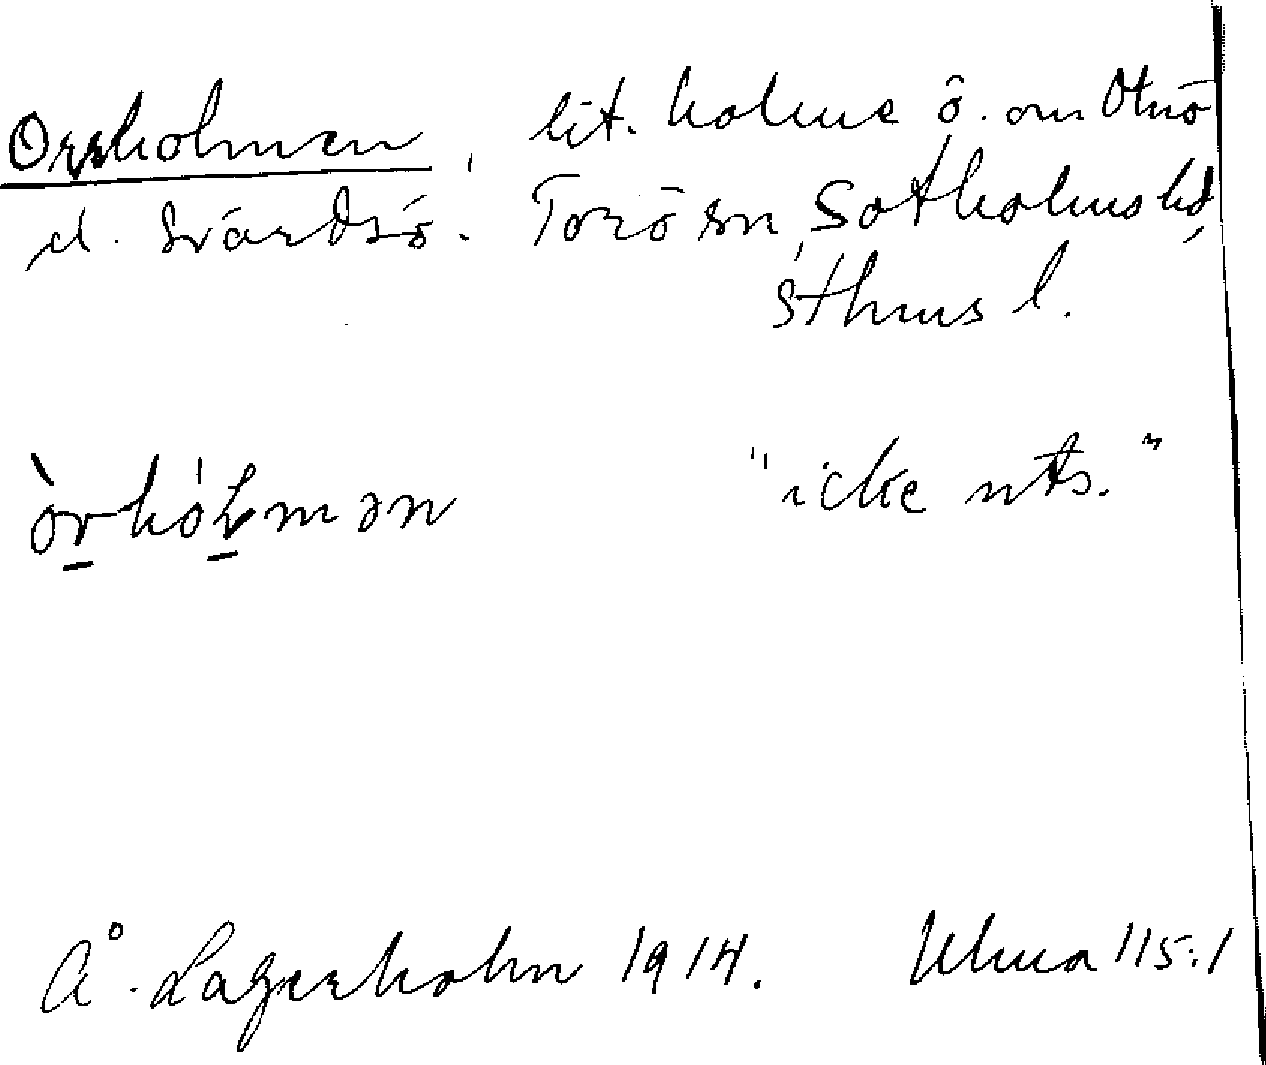 Orrholmen, lit. holme ö. om Otnö
d. Svärdsö. Torö sn, Sotholms hd,
Sthms l.
òrhól̠mən "icke uts."
Å. Lagerholm 1914. Uluca 115:1